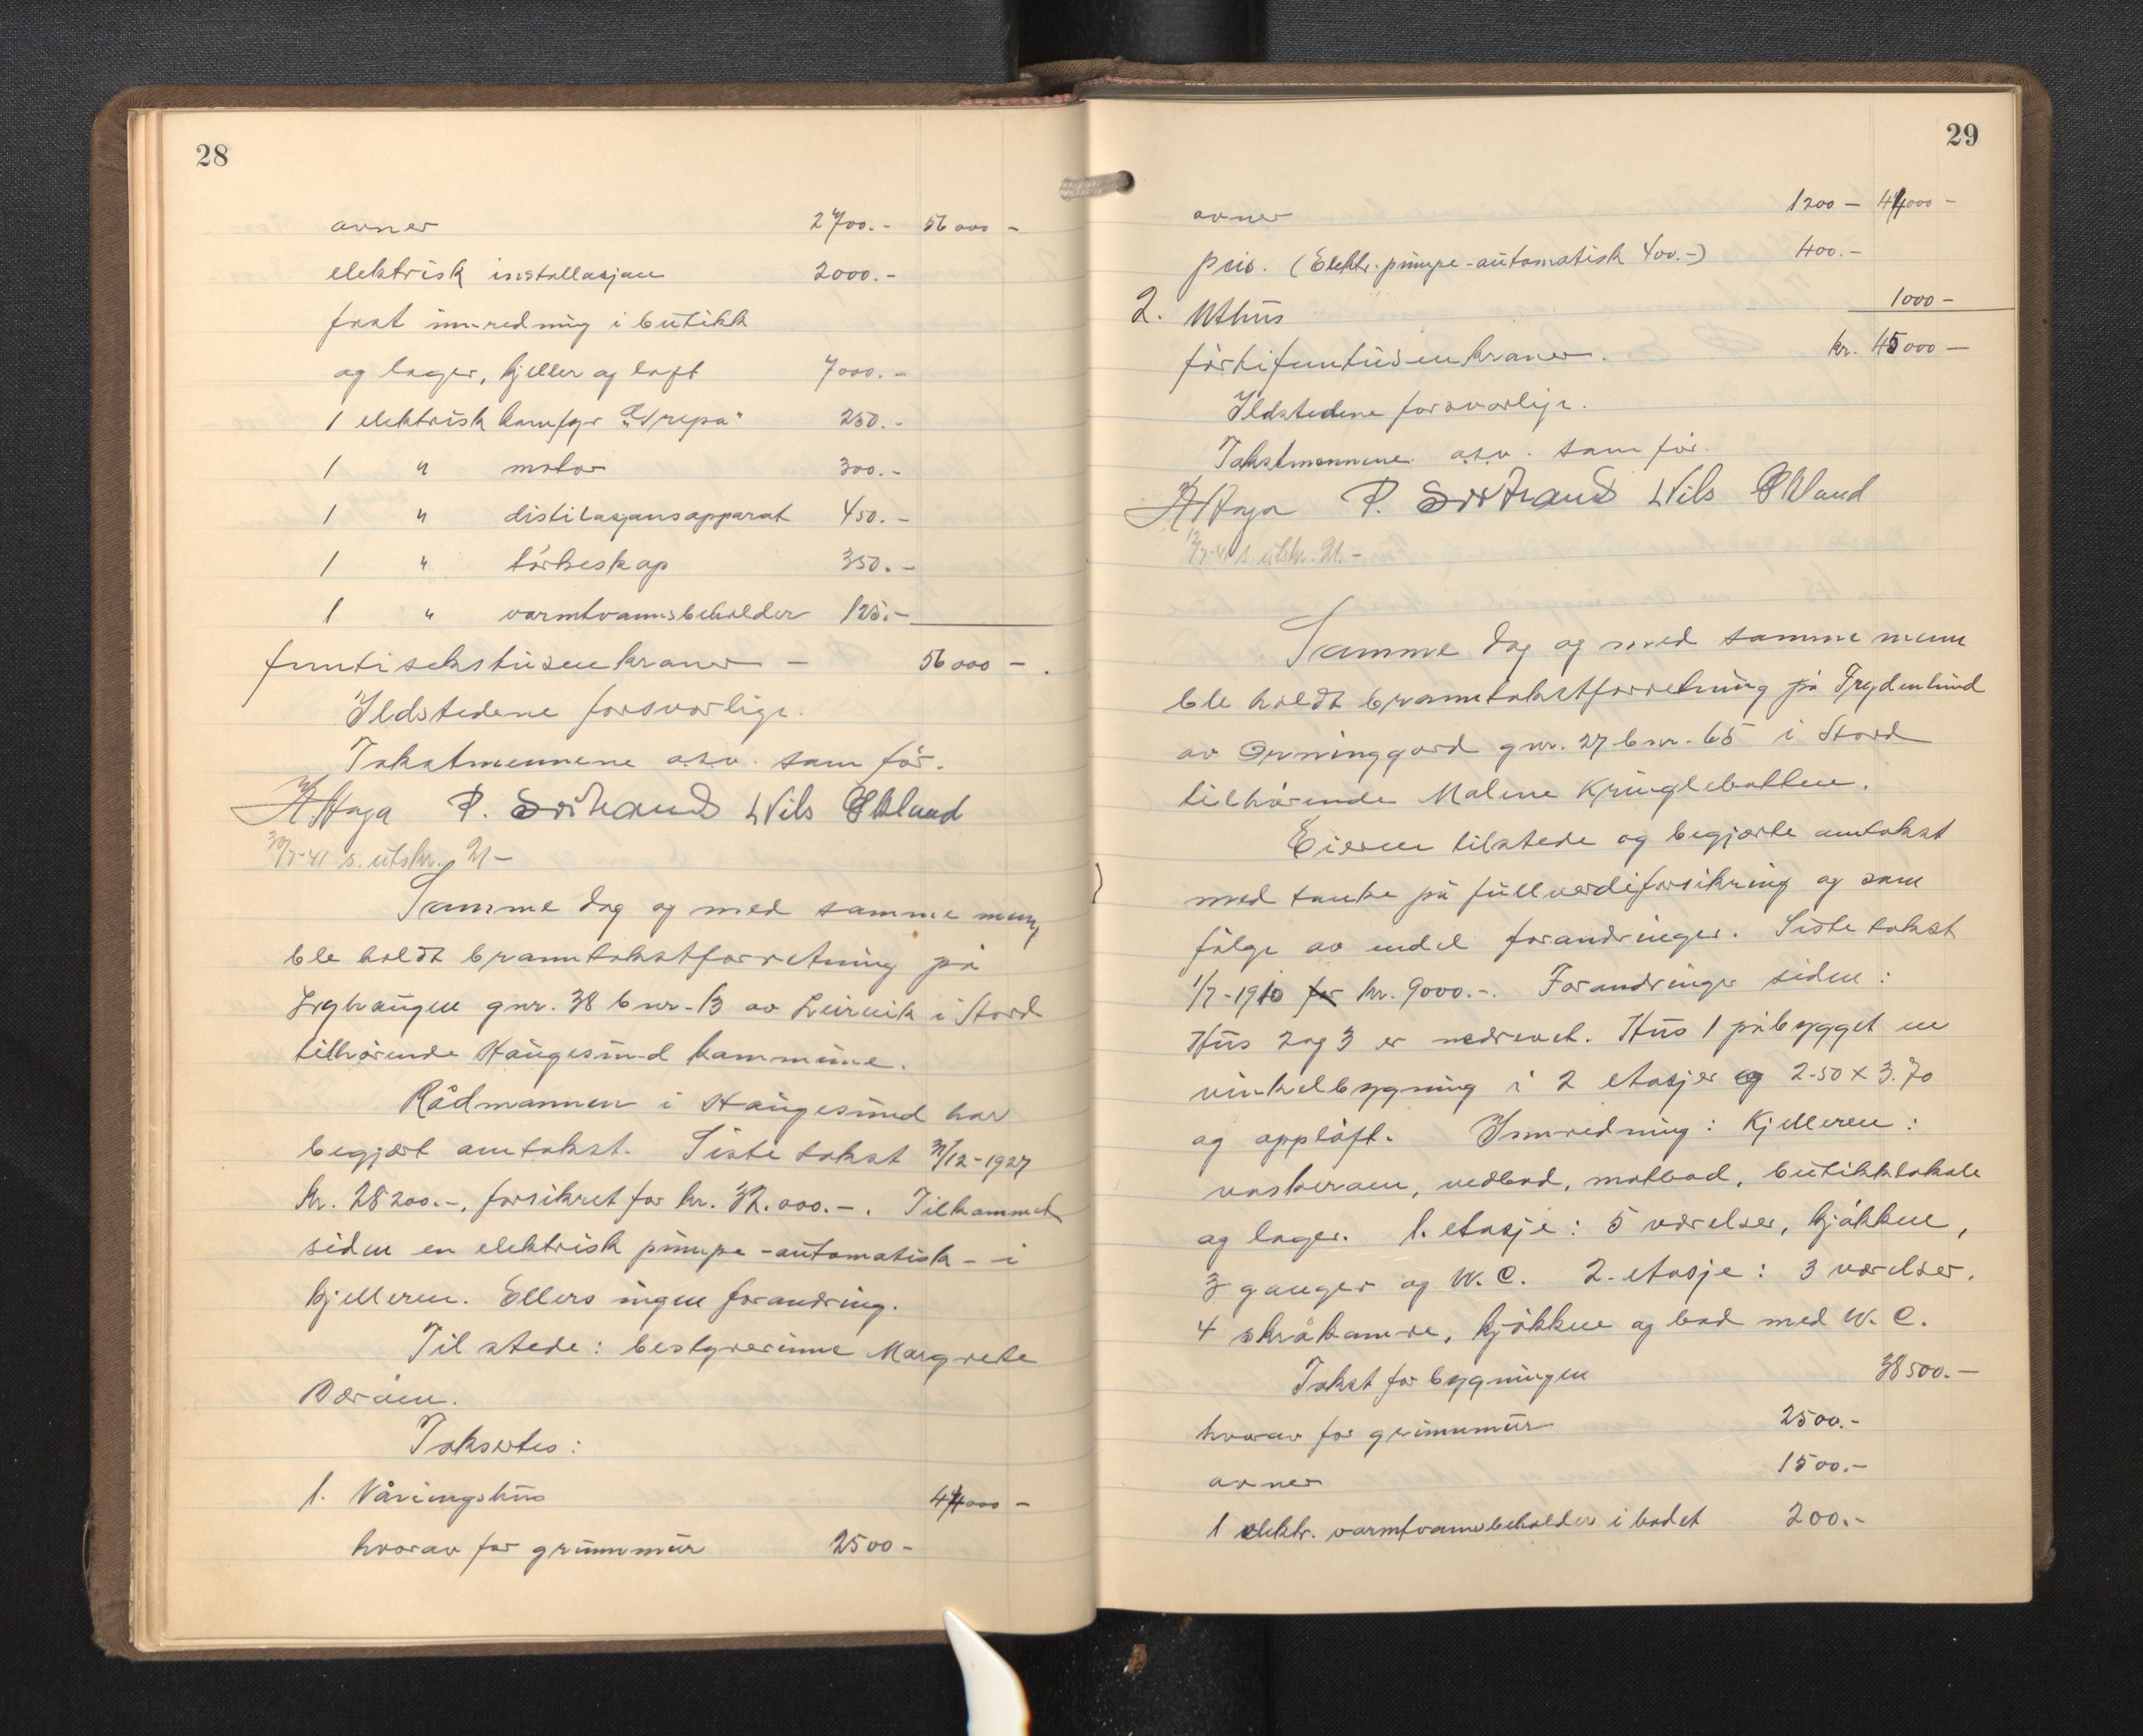 28
ovner 2700.- 56000 -
elektrisk installasjon 2000.-
fast innredning i butikk
og lager, kjeller og loft 7000.-
1 elektrisk komfyr "Grepa" 250.-
1 " motor 300.-
1 " distilasjonsapparat 450.-
1 " tørkeskap 350.-
1 " varmtvannsbeholder 125.-
femtisekstusenkroner - 56000 - .
Ildstedene forsvarlige.
Takstmennene o.s.v. som før.
A Haga P. Sortland Nils Økland
30/7-41 s. utskr. 21 -
Samme dag og med samme menn,
ble holdt branntakstforretning på
Lyghaugen gnr. 38 bnr. 13 av Leirvik i Stord
tilhørende Haugesund kommune.
Rådmannen i Haugesund har
begjært omtakst. Siste takst 31/12-1927
kr. 28200.-, forsikret for kr. 32.000.-. Tilkommet
siden en elektrisk pumpe - automatisk - i
kjelleren. Ellers ingen forandring.
Til stede: bestyrerinne Margrete
Takseres:
1. Våningshus 44000 -
hvorav for grunnmur 2500 -
29
ovner 1200 - 44000 -
pris. (Elektr. pumpe - automatisk 400.-) 400.-
2. Uthus 1000 -
førtifemtusenkroner. kr. 45000 -
Ildstedene forsvarlige.
Takstmennene o.s.v. som før.
A Haga P. Sortland Nils Økland
12/7-41 s. utskr. 21. -
Samme dag og med samme menn
ble holdt branntakstforretning på Frydenlund
av Orninggård gnr. 27 bnr. 65 i Stord
tilhørende Malene Kringlebotten.
Eieren tilstede og begjærte omtakst
med tanke på fullverdiforsikring og som
følge av endel forandringer. Siste takst
1/7-1910 for kr. 9000.-. Forandringer siden:
Hus 2 og 3 er nedrevet. Hus 1 påbygget en
vinkelbygning i 2 etasjer og 2.50 x 3.70
og oppløft. Innredning: Kjelleren:
vaskerom, vedbod, matbod, butikklokale
og lager. 1. etasje: 5 værelser, kjøkken,
3 ganger og W.C. 2. etasje: 3 værelser,
4 skråkamre, kjøkken og bad med W.C.
Takst for bygningen 38500.-
hvorav for grunnmur 2500.-
ovner 1500.-
1 elektr. varmtvannsbeholder i badet 200.-